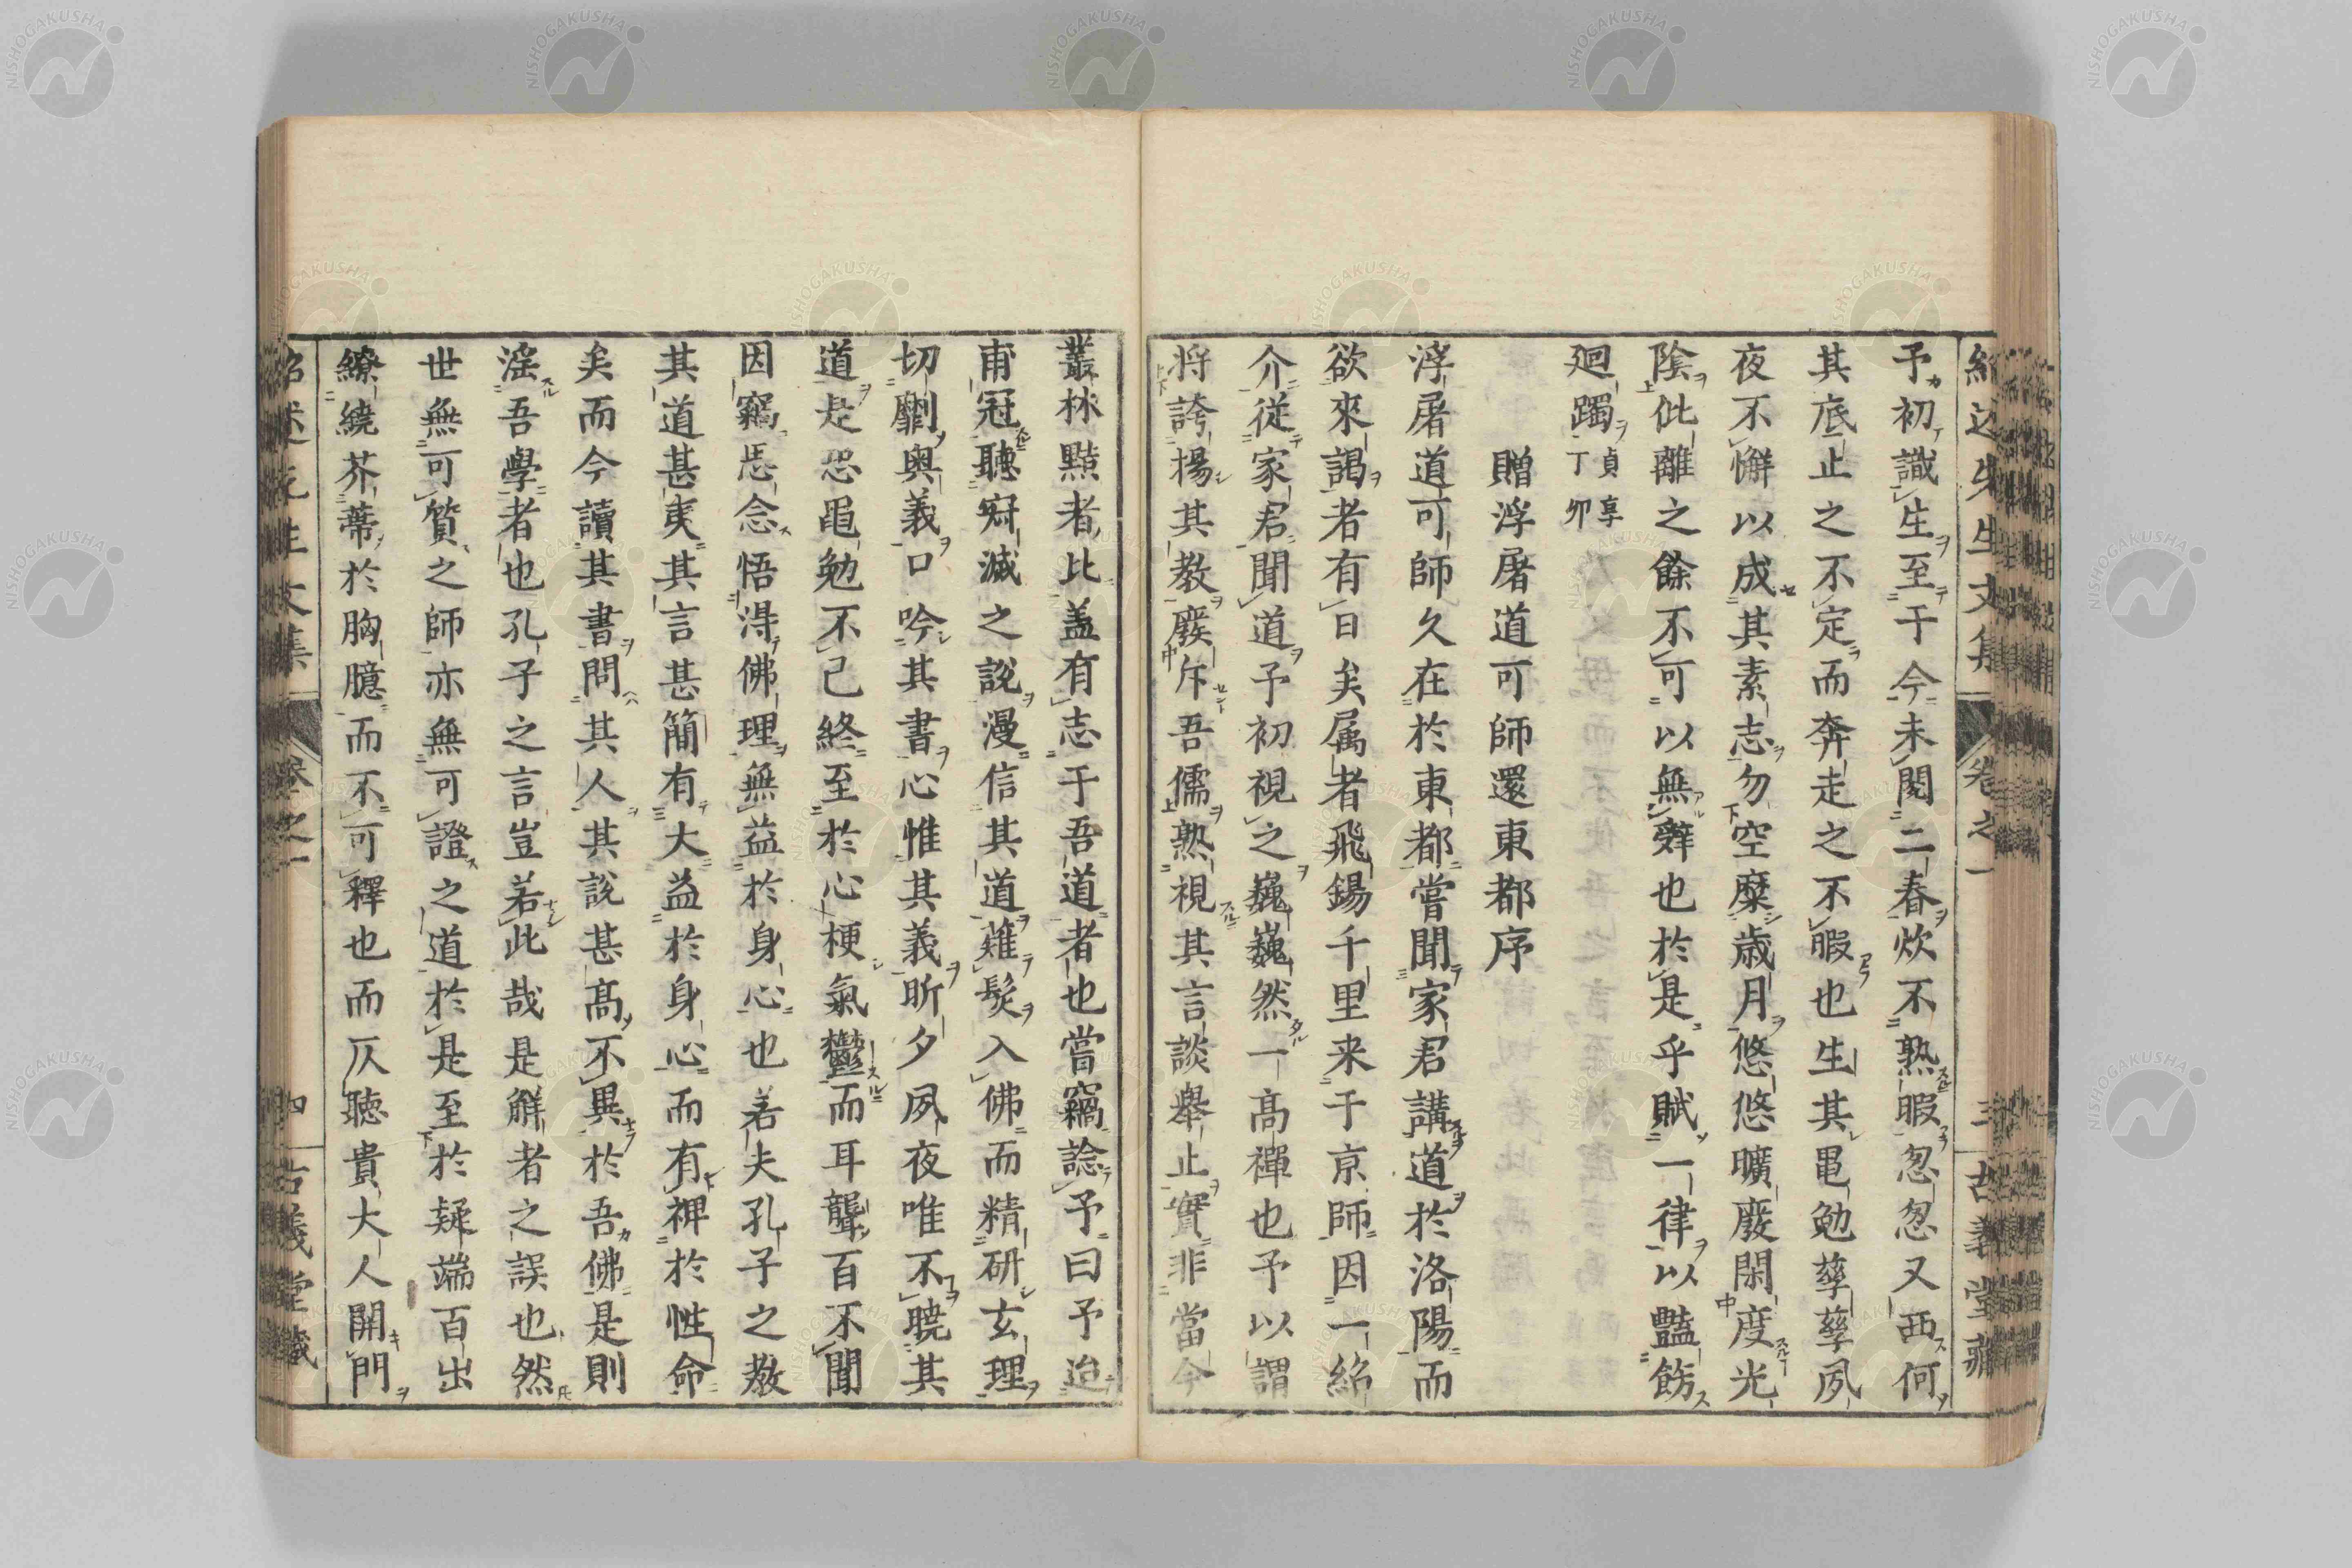 紹述先生文集 卷之一 三 古義堂藏
予初識生至于今未閱二春炊不熟暇忽忽又西何
其底止之不定而奔走之不暇也生其黽勉孳孳夙
夜不懈以成其素志勿空糜歲月悠悠曠廢閑度光
陰仳離之餘不可以無辭也於是乎賦一律以豔餝
迴躅貞享丁卯
贈浮屠道可師還東都序
浮屠道可師久在於東都嘗聞家君講道於洛陽而
欲來謁者有日矣属者飛錫千里来于京師因一紹
介從家君聞道予初視之巍巍然一高禪也予以謂
将誇揚其教廢斥吾儒熟視其言談舉止實非當今
叢林黠者比盖有志于吾道者也嘗竊諗予曰予迨
甫冠聽寂滅之說漫信其道薙髮入佛而精研玄理
切劘奥義口吟其書心惟其義昕夕夙夜唯不曉其
道是恐黽勉不已終至於心梗氣鬱而耳聾百不聞
因竊恁念悟得佛理無益於身心也若夫孔子之教
其道甚夷其言甚簡有大益於身心而有裨於性命
矣而今讀其書問其人其說甚高不異於吾佛是則
淫吾學者也孔子之言豈若此哉是觧者之誤也然
世無可質之師亦無可證之道於是至於疑端百出
繚繞芥蔕於胸臆而不可釋也而仄聽貴大人開門
紹述先生文集 卷之一 四 古義堂藏